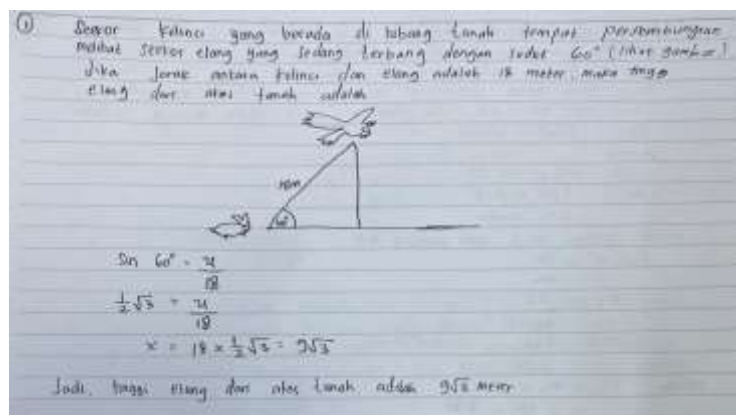 ① Seekor kelinci yang berada di lubang tanah tempat persembunyian
melihat seekor elang yang sedang terbang dengan sudut 60° (lihat gambar)
Jika jarak antara kelinci dan elang adalah 18 meter, maka tinggi
elang dari atas tanah adalah
18m
60°
Sin 60° = x/18
1/2 √3 = x/18
x = 18 x 1/2 √3 = 9√3
Jadi, tinggi elang dari atas tanah adalah 9√3 meter